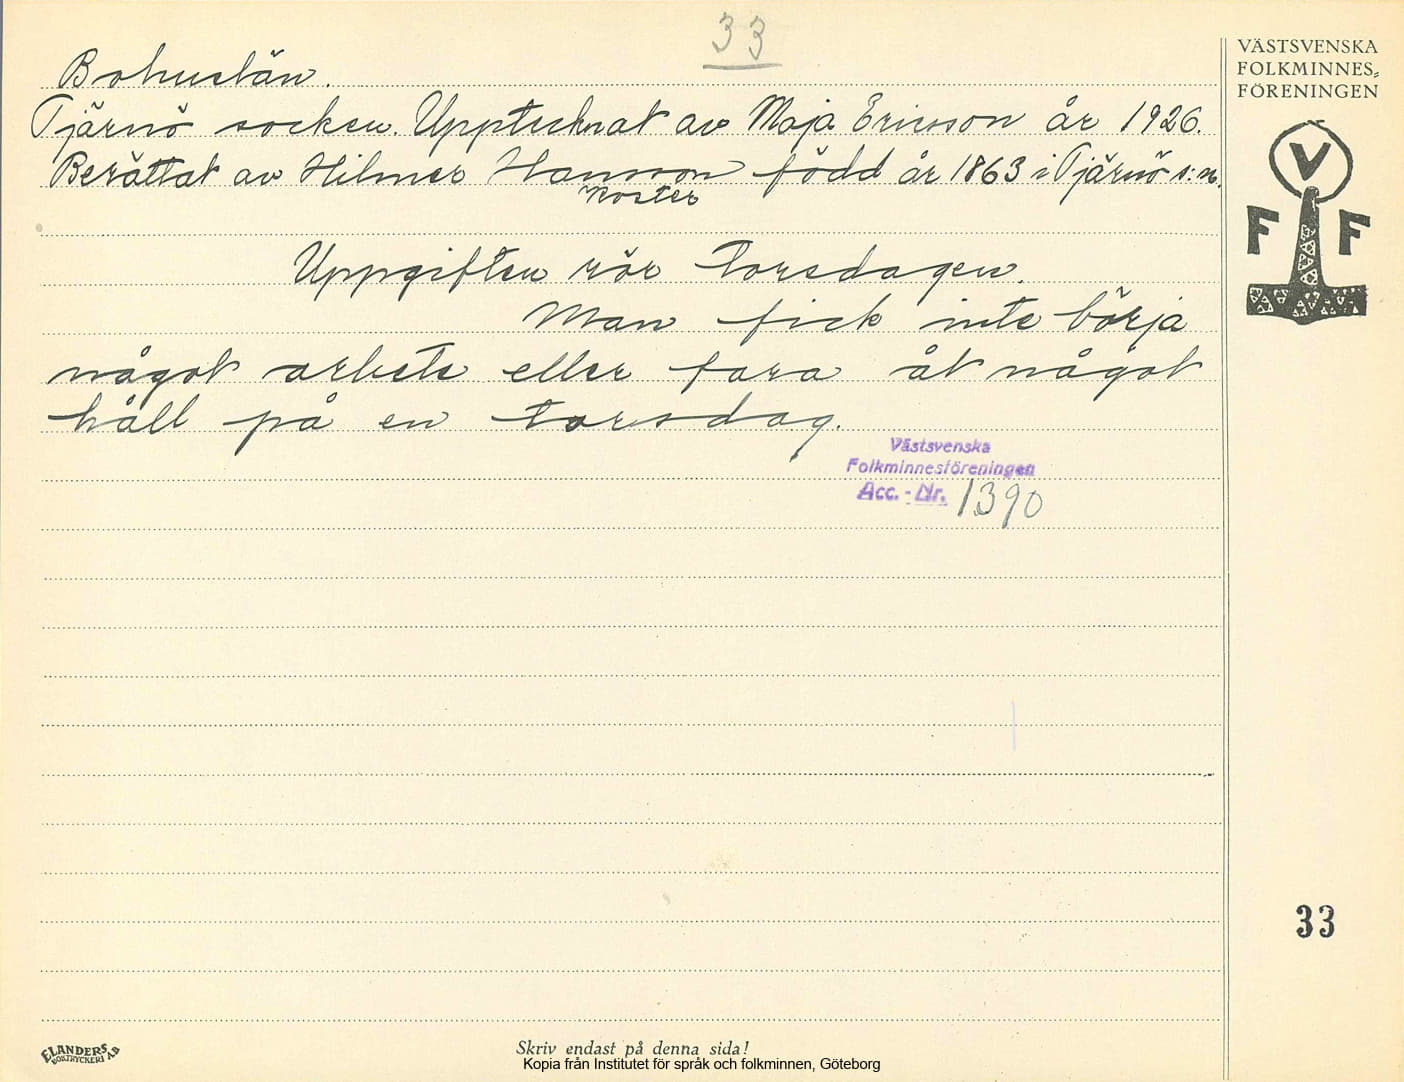 33
Bohuslän.
Tjärnö socken. Upptecknat av Maja Ericsson år 1926.
Berättat av Hilmer Hansson född år 1863 i Tjärnö s:n.
Koster
Uppgiften rör torsdagen.
Man fick inte börja
något arbete eller fara åt något
håll på en torsdag.
Västsvenska
Folkminnesföreningen
Acc. - Nr. 1390
VÄSTSVENSKA
FOLKMINNES-
FÖRENINGEN
V
F F
33
ELANDERS
BOKTRYCKERI AB
Skriv endast på denna sida!
Kopia från Institutet för språk och folkminnen, Göteborg